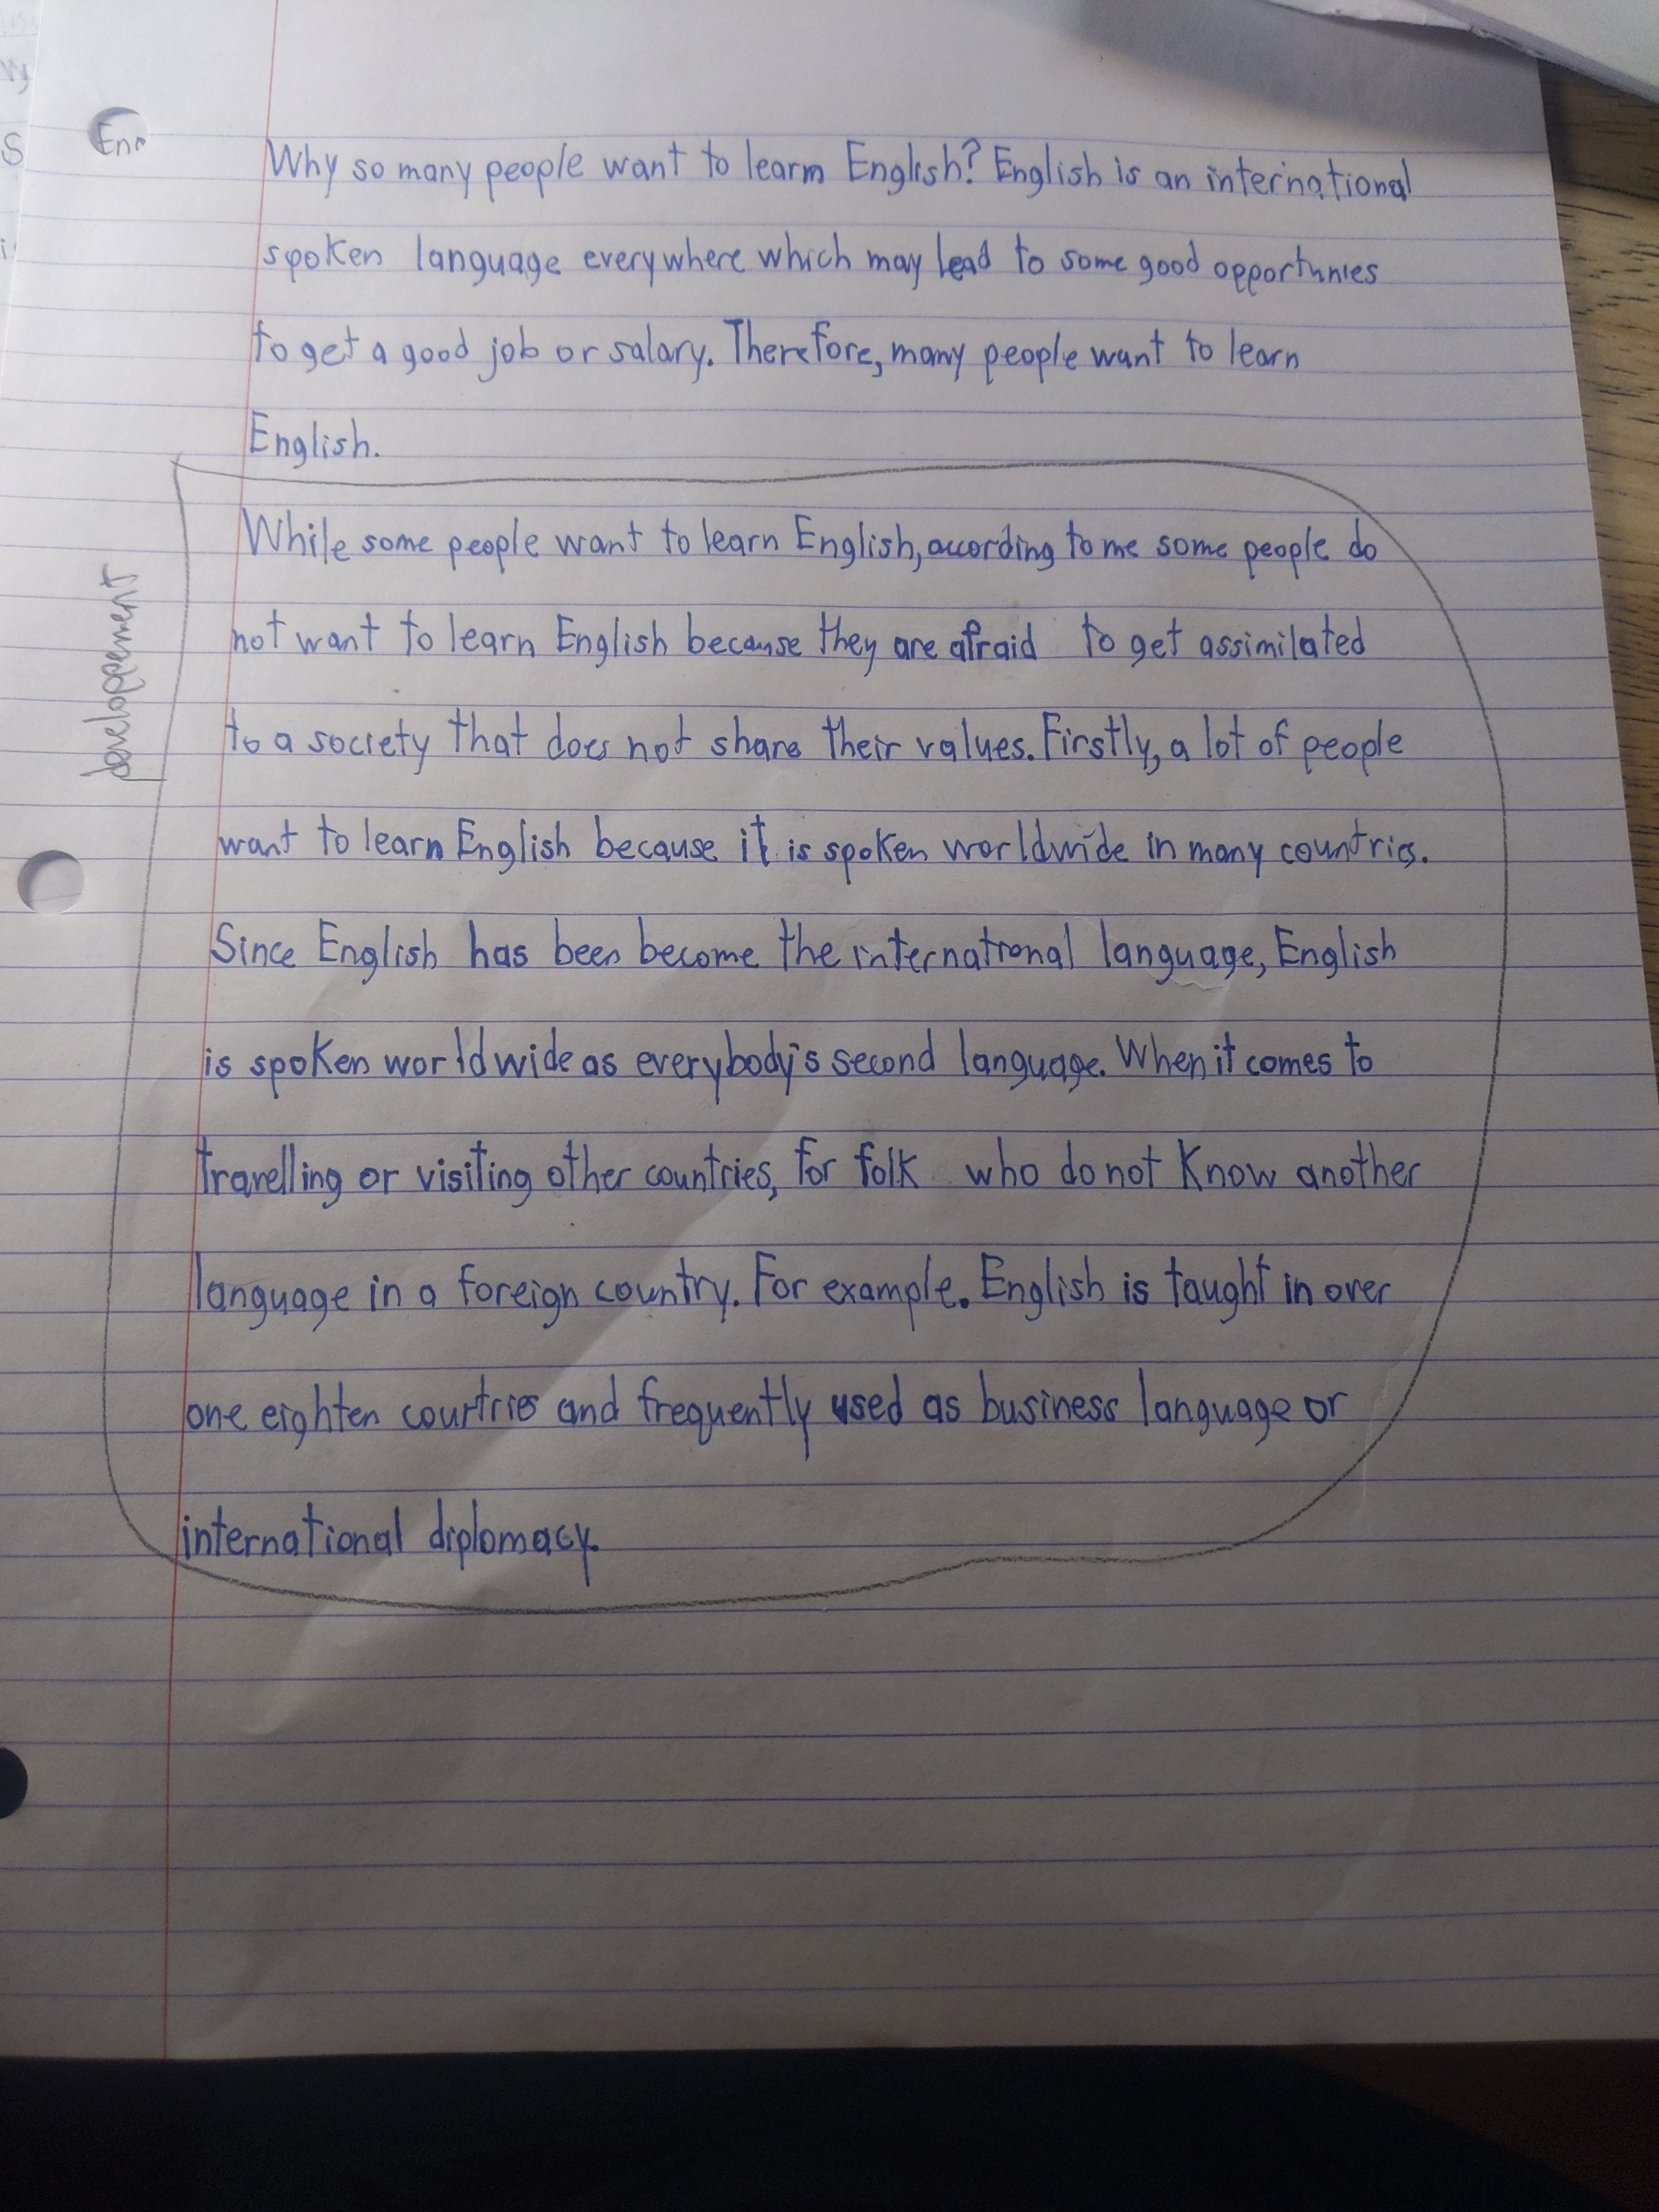 Why so many people want to learm English? English is an international
spoken language everywhere which may lead to some good opportunies
to get a good job or salary. Therefore, many people want to learn
English.
developement
While some people want to learn English, according to me some people do
not want to learn English because they are afraid to get assimilated
to a society that does not share their values. Firstly, a lot of people
want to learn English because it is spoken worldwide in many countries.
Since English has been become the international language, English
is spoken worldwide as everybody's second language. When it comes to
travelling or visiting other countries, for folk who do not know another
language in a foreign country. For example. English is taught in over
one eighten courtries and frequently used as business language or
international diplomacy.